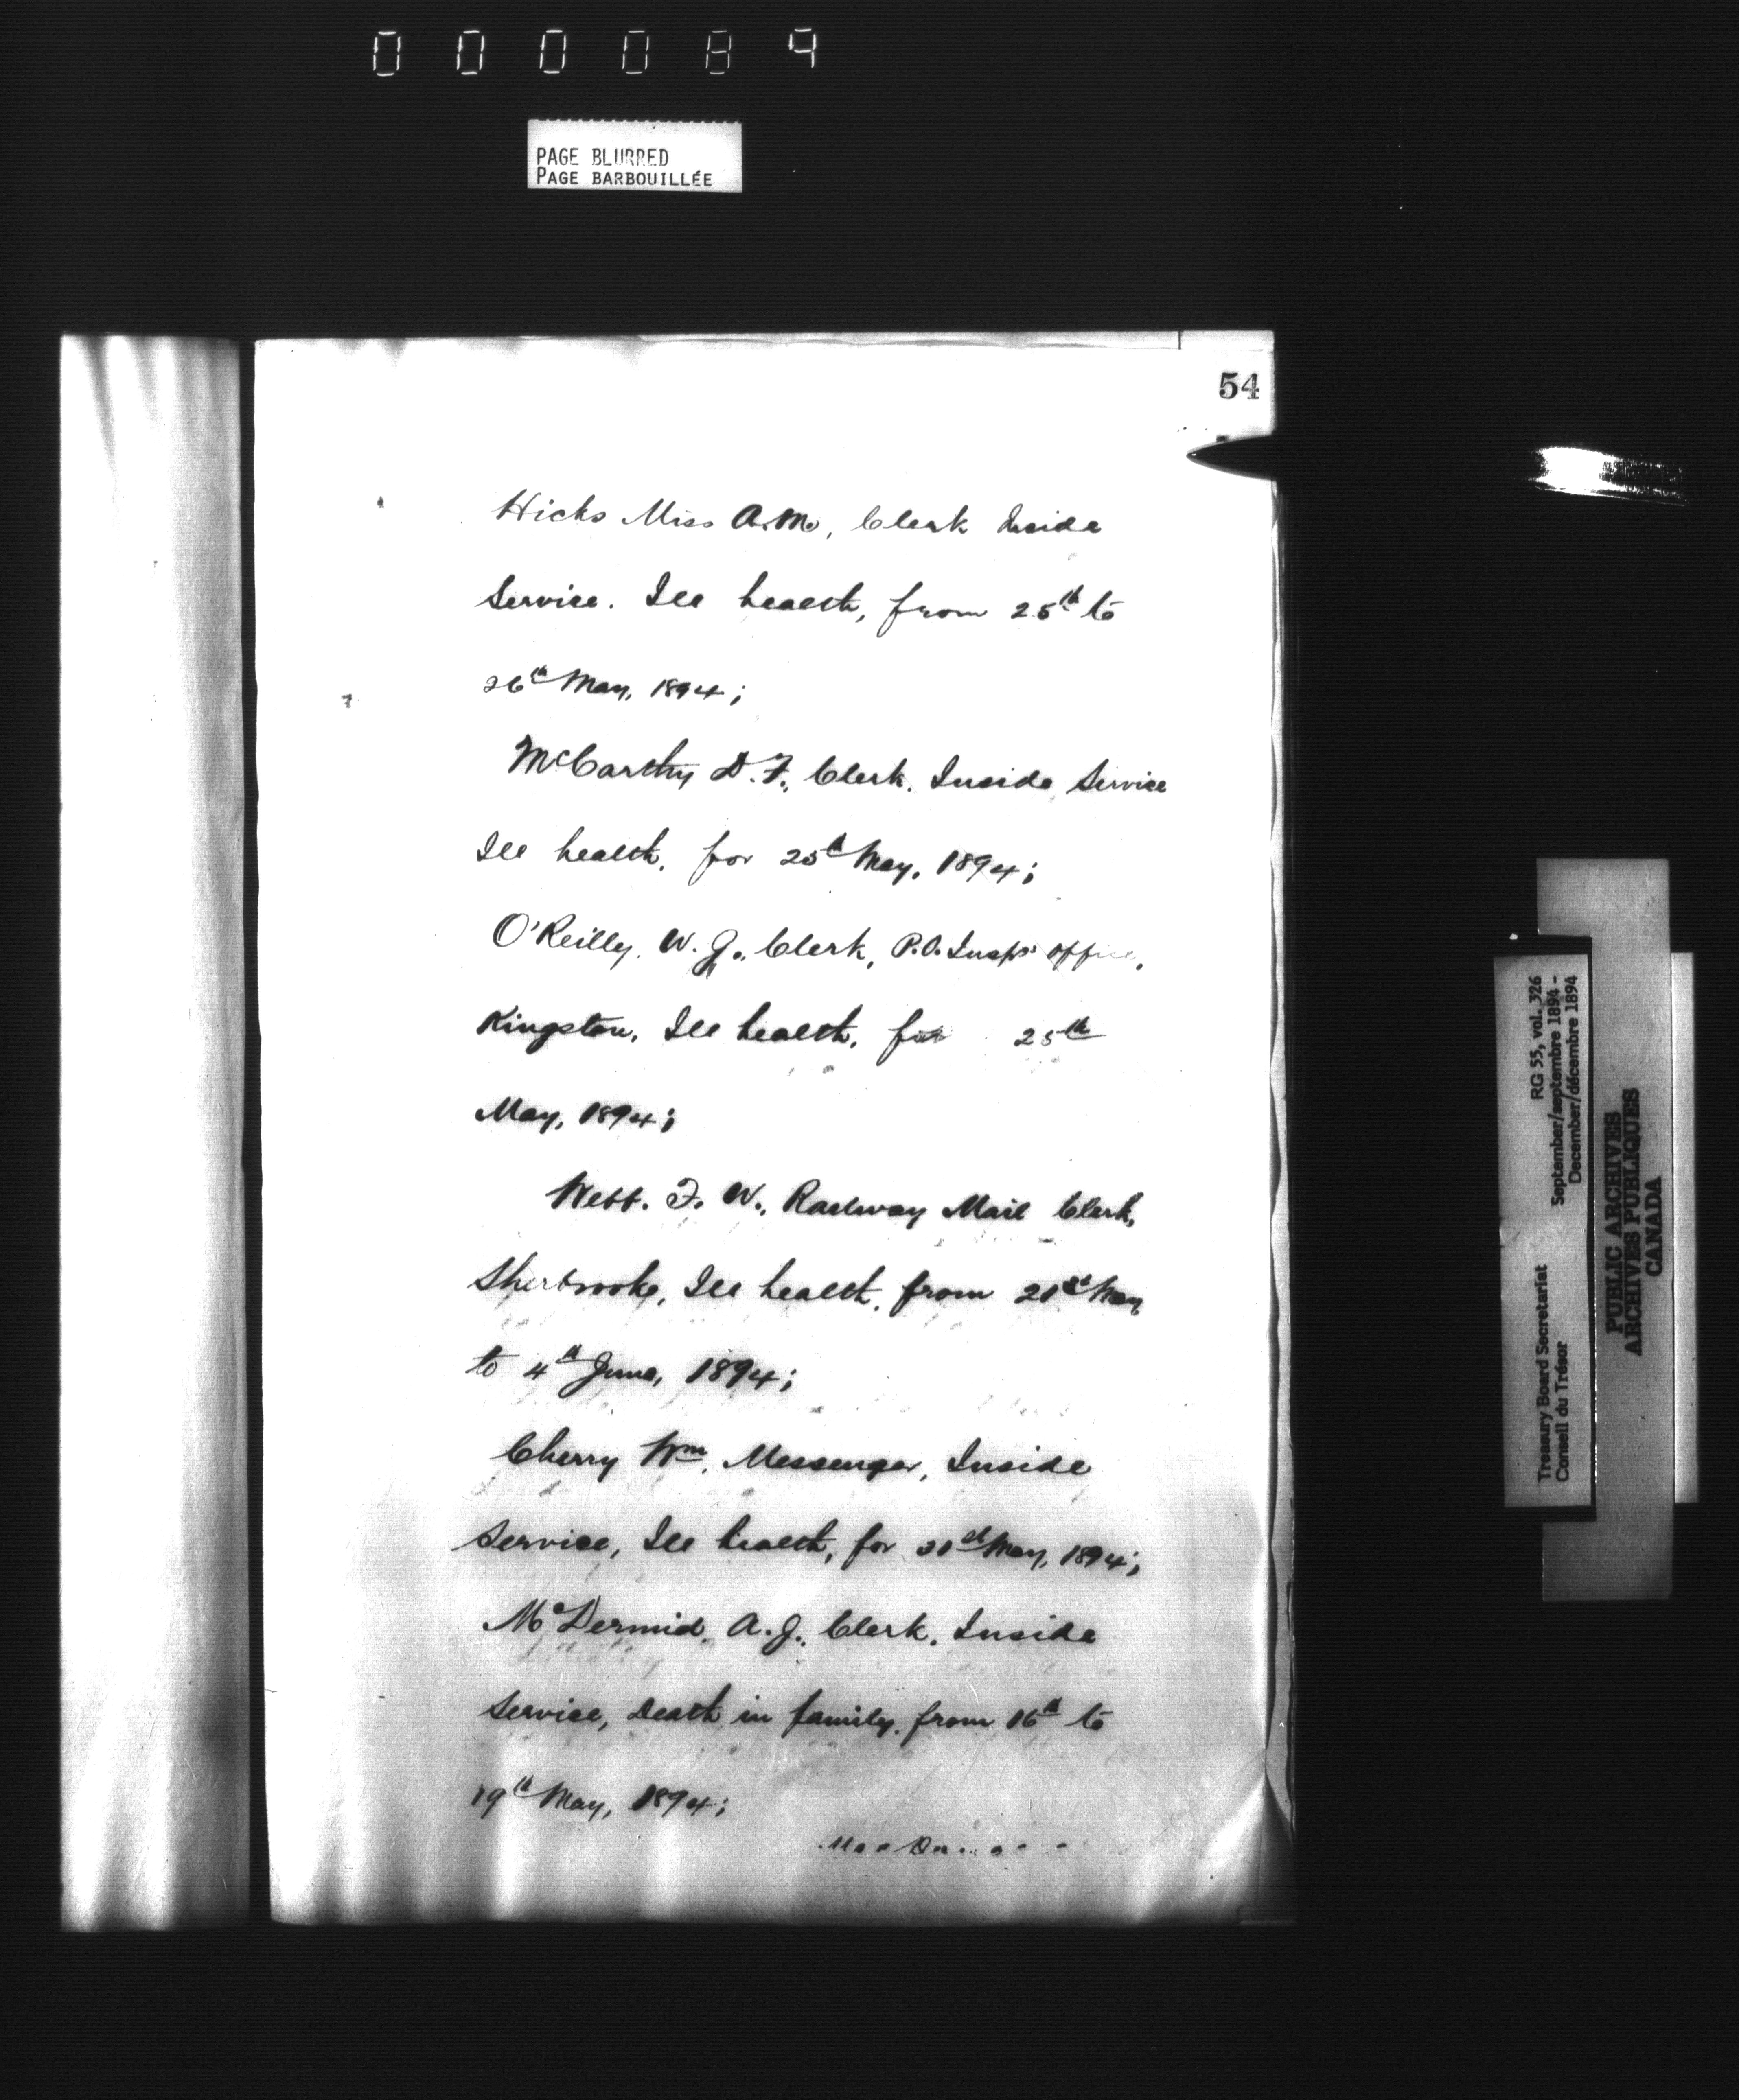 000089
PAGE BLURRED
PAGE BARBOUILLÉE
54
Hicks Miss A.M., Clerk Inside
Service. Ill health, from 25th to
26th May, 1894;
McCarthy D.F., Clerk. Inside Service
Ill health, for 25th May, 1894;
O'Reilly, W.J., Clerk, P.O. Insprs office,
Kingston, Ill health, for 25th
May, 1894;
Webb. F. W., Railway Mail Clerk,
Sherbrooke, Ill health, from 21st May
to 4th June, 1894;
Cherry Wm, Messenger, Inside
Service, Ill health, for 31st May, 1894;
McDermid, A.J., Clerk. Inside
Service, Death in family, from 16th to
19th May, 1894;
Treasury Board Secretariat RG 55, vol. 326
Conseil du Trésor September/septembre 1894 -
December/décembre 1894
PUBLIC ARCHIVES
ARCHIVES PUBLIQUES
CANADA